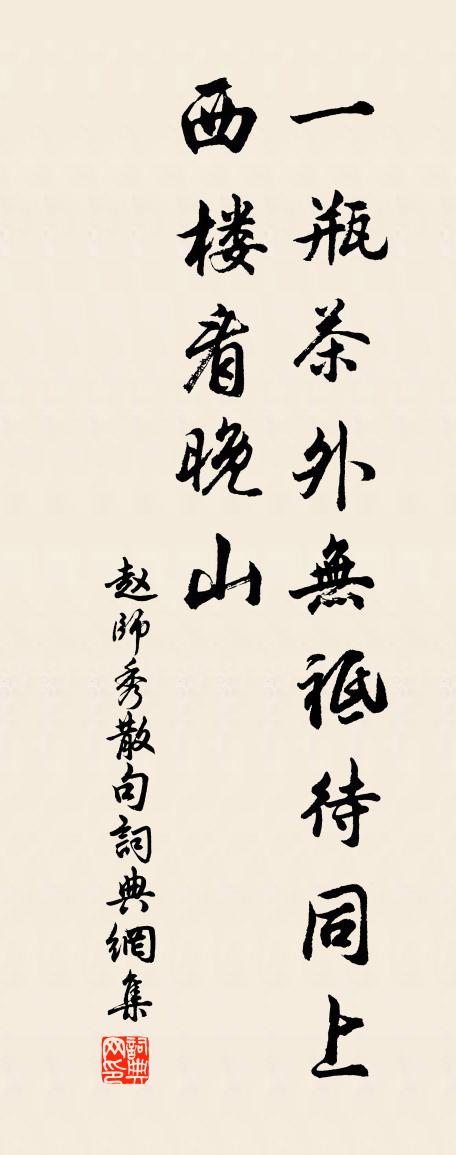 一瓶茶外無祗待同上
西楼看晚山
赵師秀散句詞典網集
詞典
网印